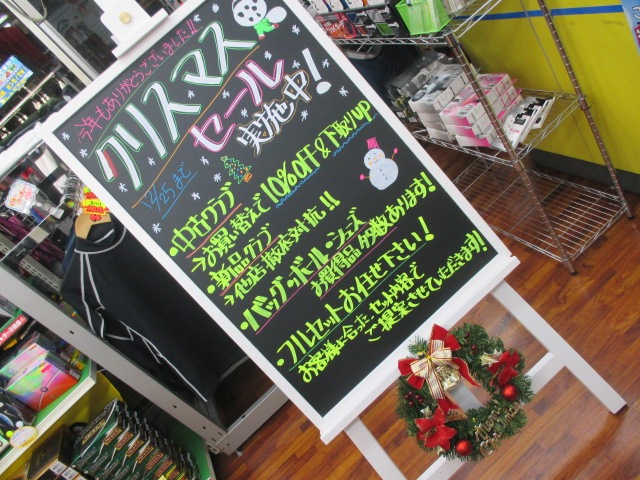 今年もありがとうございました!!
クリスマス
セール
実施中!
12/25まで
・中古クラブ
→お買い替えで10%OFF&下取りUP
・新品クラブ
→他店徹底対抗!!
・バッグ・ボール・シューズ
お買得品多数あります!
・フルセットお任せ下さい!
お客様に合ったセット内容で
ご提案させていただきます!